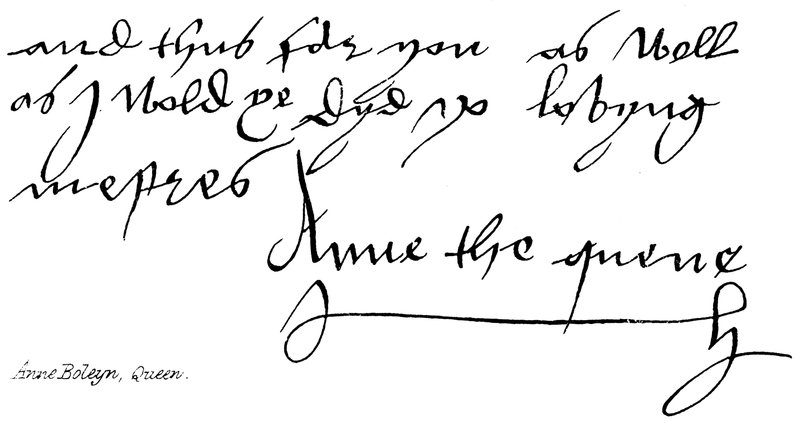 and thus far you as well
as I wold ye dyd yo lovyng
mestres
Anne the quene
Anne Boleyn, Queen.